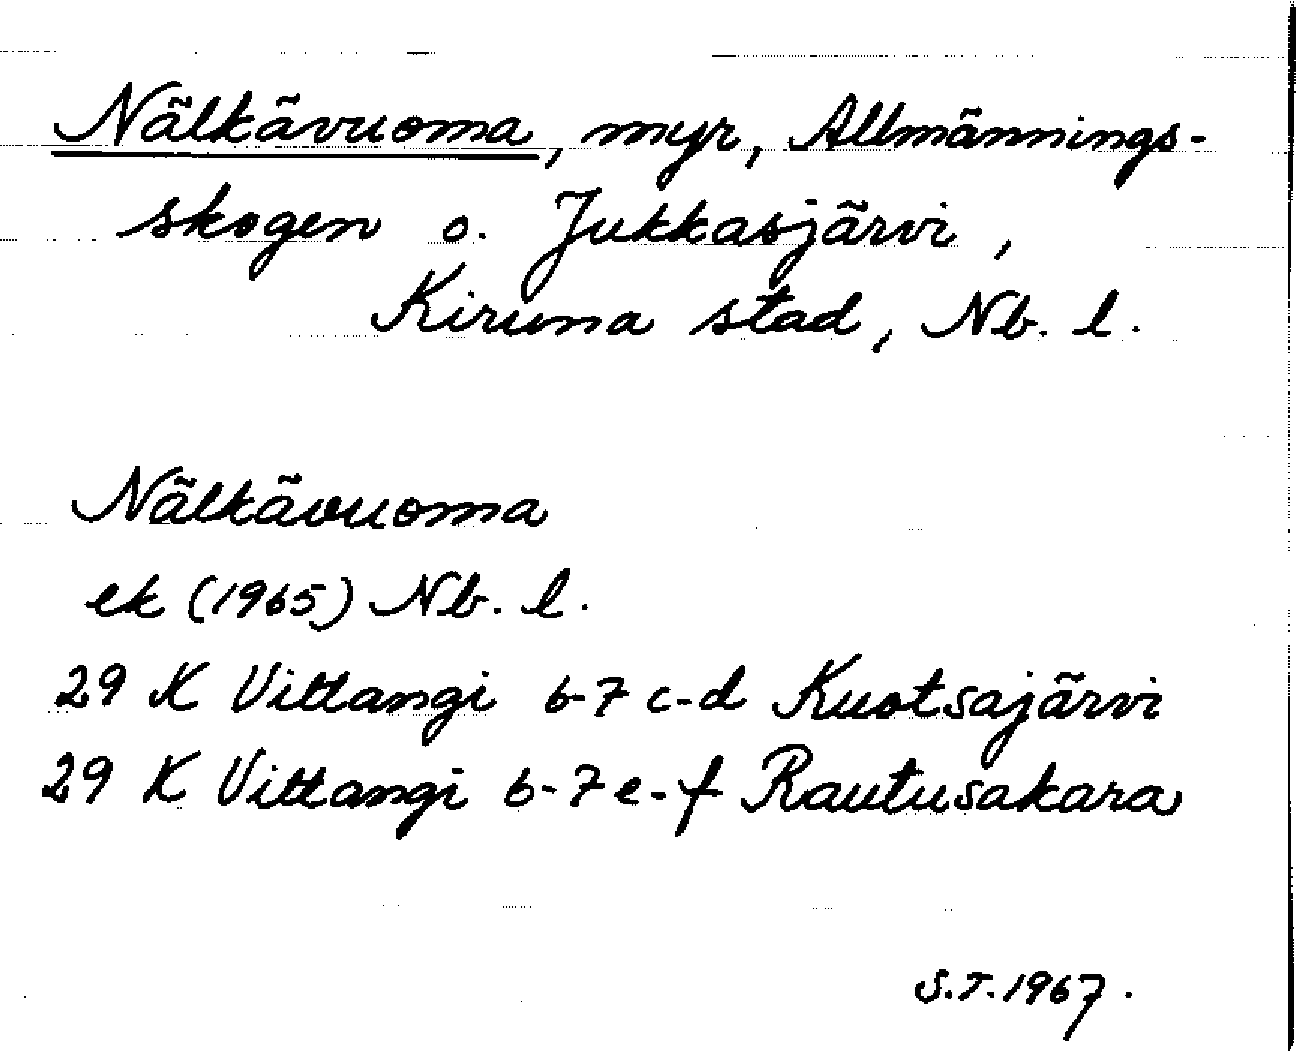 Nälkävuoma, myr, Allmännings-
skogen o. Jukkasjärvi,
Kiruna stad, Nb. l.
Nälkävuoma
ek (1965) Nb. l.
29 K Vittangi 6-7 c-d Kuotsajärvi
29 K Vittangi 6-7 e-f Rautusakara
S.T. 1967.